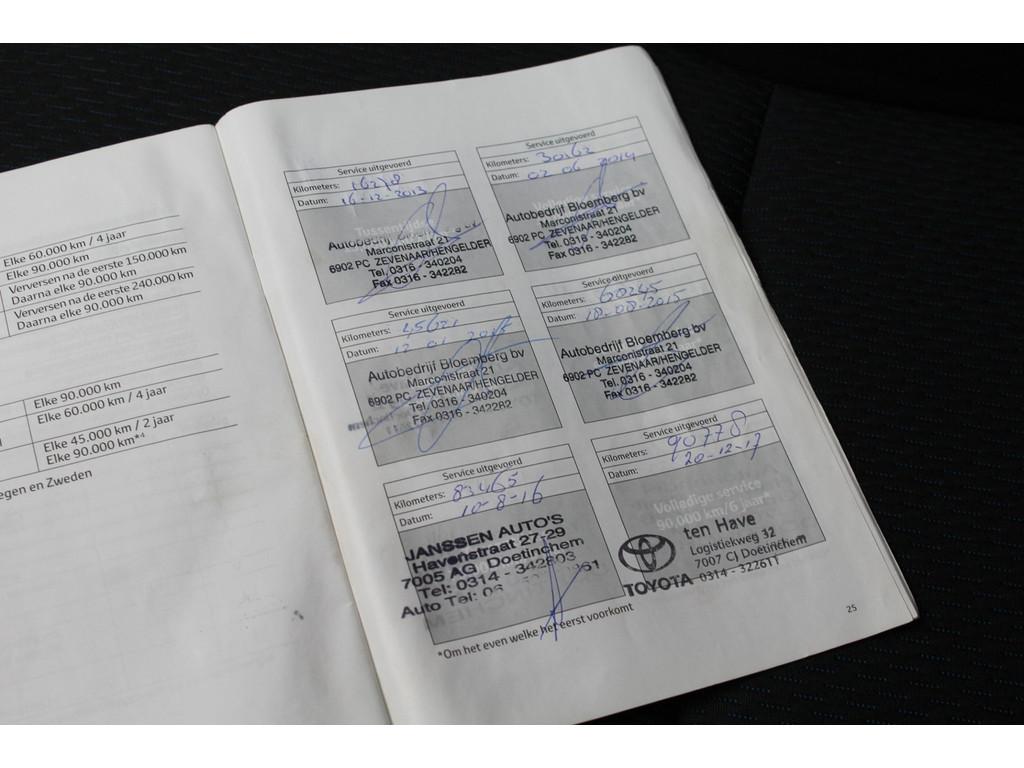 Elke 60.000 km / 4 jaar
Elke 90.000 km
Verversen na de eerste 150.000 km
Daarna elke 90.000 km
Verversen na de eerste 240.000 km
Daarna elke 90.000 km
Elke 90.000 km
Elke 60.000 km / 4 jaar
Elke 45.000 km / 2 jaar
Elke 90.000 km*4
egen en Zweden
Service uitgevoerd
Kilometers: 16278
Datum: 16-12-2013
Tussentijds
Autobedrijf
Marconistraat 21
6902 PC ZEVENAAR/HENGELDER
Tel. 0316 - 340204
Fax 0316 - 342282
Service uitgevoerd
Kilometers: 30162
Datum: 02 06 2014
Autobedrijf Bloemberg bv
Marconistraat 21
6902 PC ZEVENAAR/HENGELDER
Tel. 0316 - 340204
Fax 0316 - 342282
Service uitgevoerd
Kilometers: 45621
Datum: 12 01
Autobedrijf Bloemberg bv
Marconistraat 21
6902 PC ZEVENAAR/HENGELDER
Tel. 0316 - 340204
Fax 0316 - 342282
Service uitgevoerd
Kilometers: 60245
Datum: 18-08-2015
Autobedrijf Bloemberg bv
Marconistraat 21
6902 PC ZEVENAAR/HENGELDER
Tel. 0316 - 340204
Fax 0316 - 342282
Service uitgevoerd
Kilometers: 83465
Datum: 10-8-16
JANSSEN AUTO'S
Havenstraat 27-29
7005 AG Doetinchem
Tel: 0314 - 342803
Auto Tel: 06
Service uitgevoerd
Kilometers: 90778
Datum: 20-12-17
Volledige service
90.000 km/6 jaar*
ten Have
Logistiekweg 32
7007 CJ Doetinchem
TOYOTA 0314 - 322611
*Om het even welke het eerst voorkomt
25